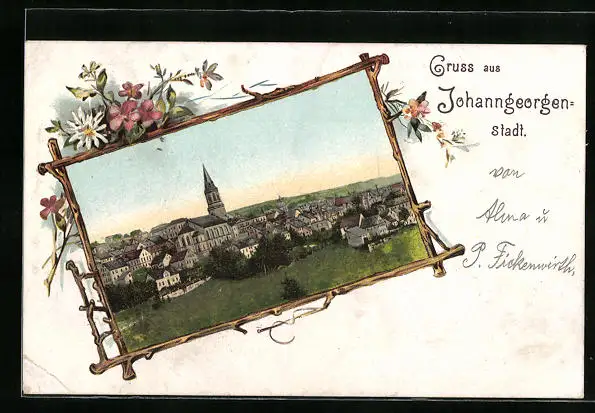 Gruss aus
Johanngeorgen=
stadt.
von
Alma u
P. Fickenwirth.